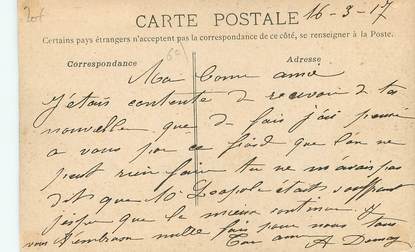 206
CARTE POSTALE 16-3-17
Certains pays étrangers n'acceptent pas la correspondance de ce côté, se renseigner à la Poste.
Correspondance Adresse
Ma bonne amie
J'étais contente de recevoir de ta
nouvelle que de fois j'ai pensé
a vous par ce froid que l'on ne
peut rien faire tu ne m'avais pas
dit que Mr Léopold était souffrant
j'espère que le mieux continue Je
vous embrasse mille fois pour nous tous
Ton amie A